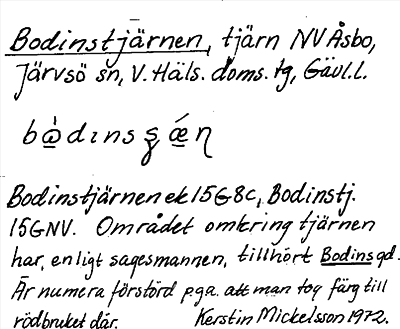 Bodinstjärnen, tjärn NV Åsbo,
Järvsö sn, V. Häls. doms. tg, Gävl. l.
Bodinstjärnen ek 15G8c, Bodinstj.
15GNV. Området omkring tjärnen
har, enligt sagesmannen, tillhört Bodins gd.
Är numera förstörd p.g.a. att man tog färg till
rödbruket där. Kerstin Mickelsson 1972.